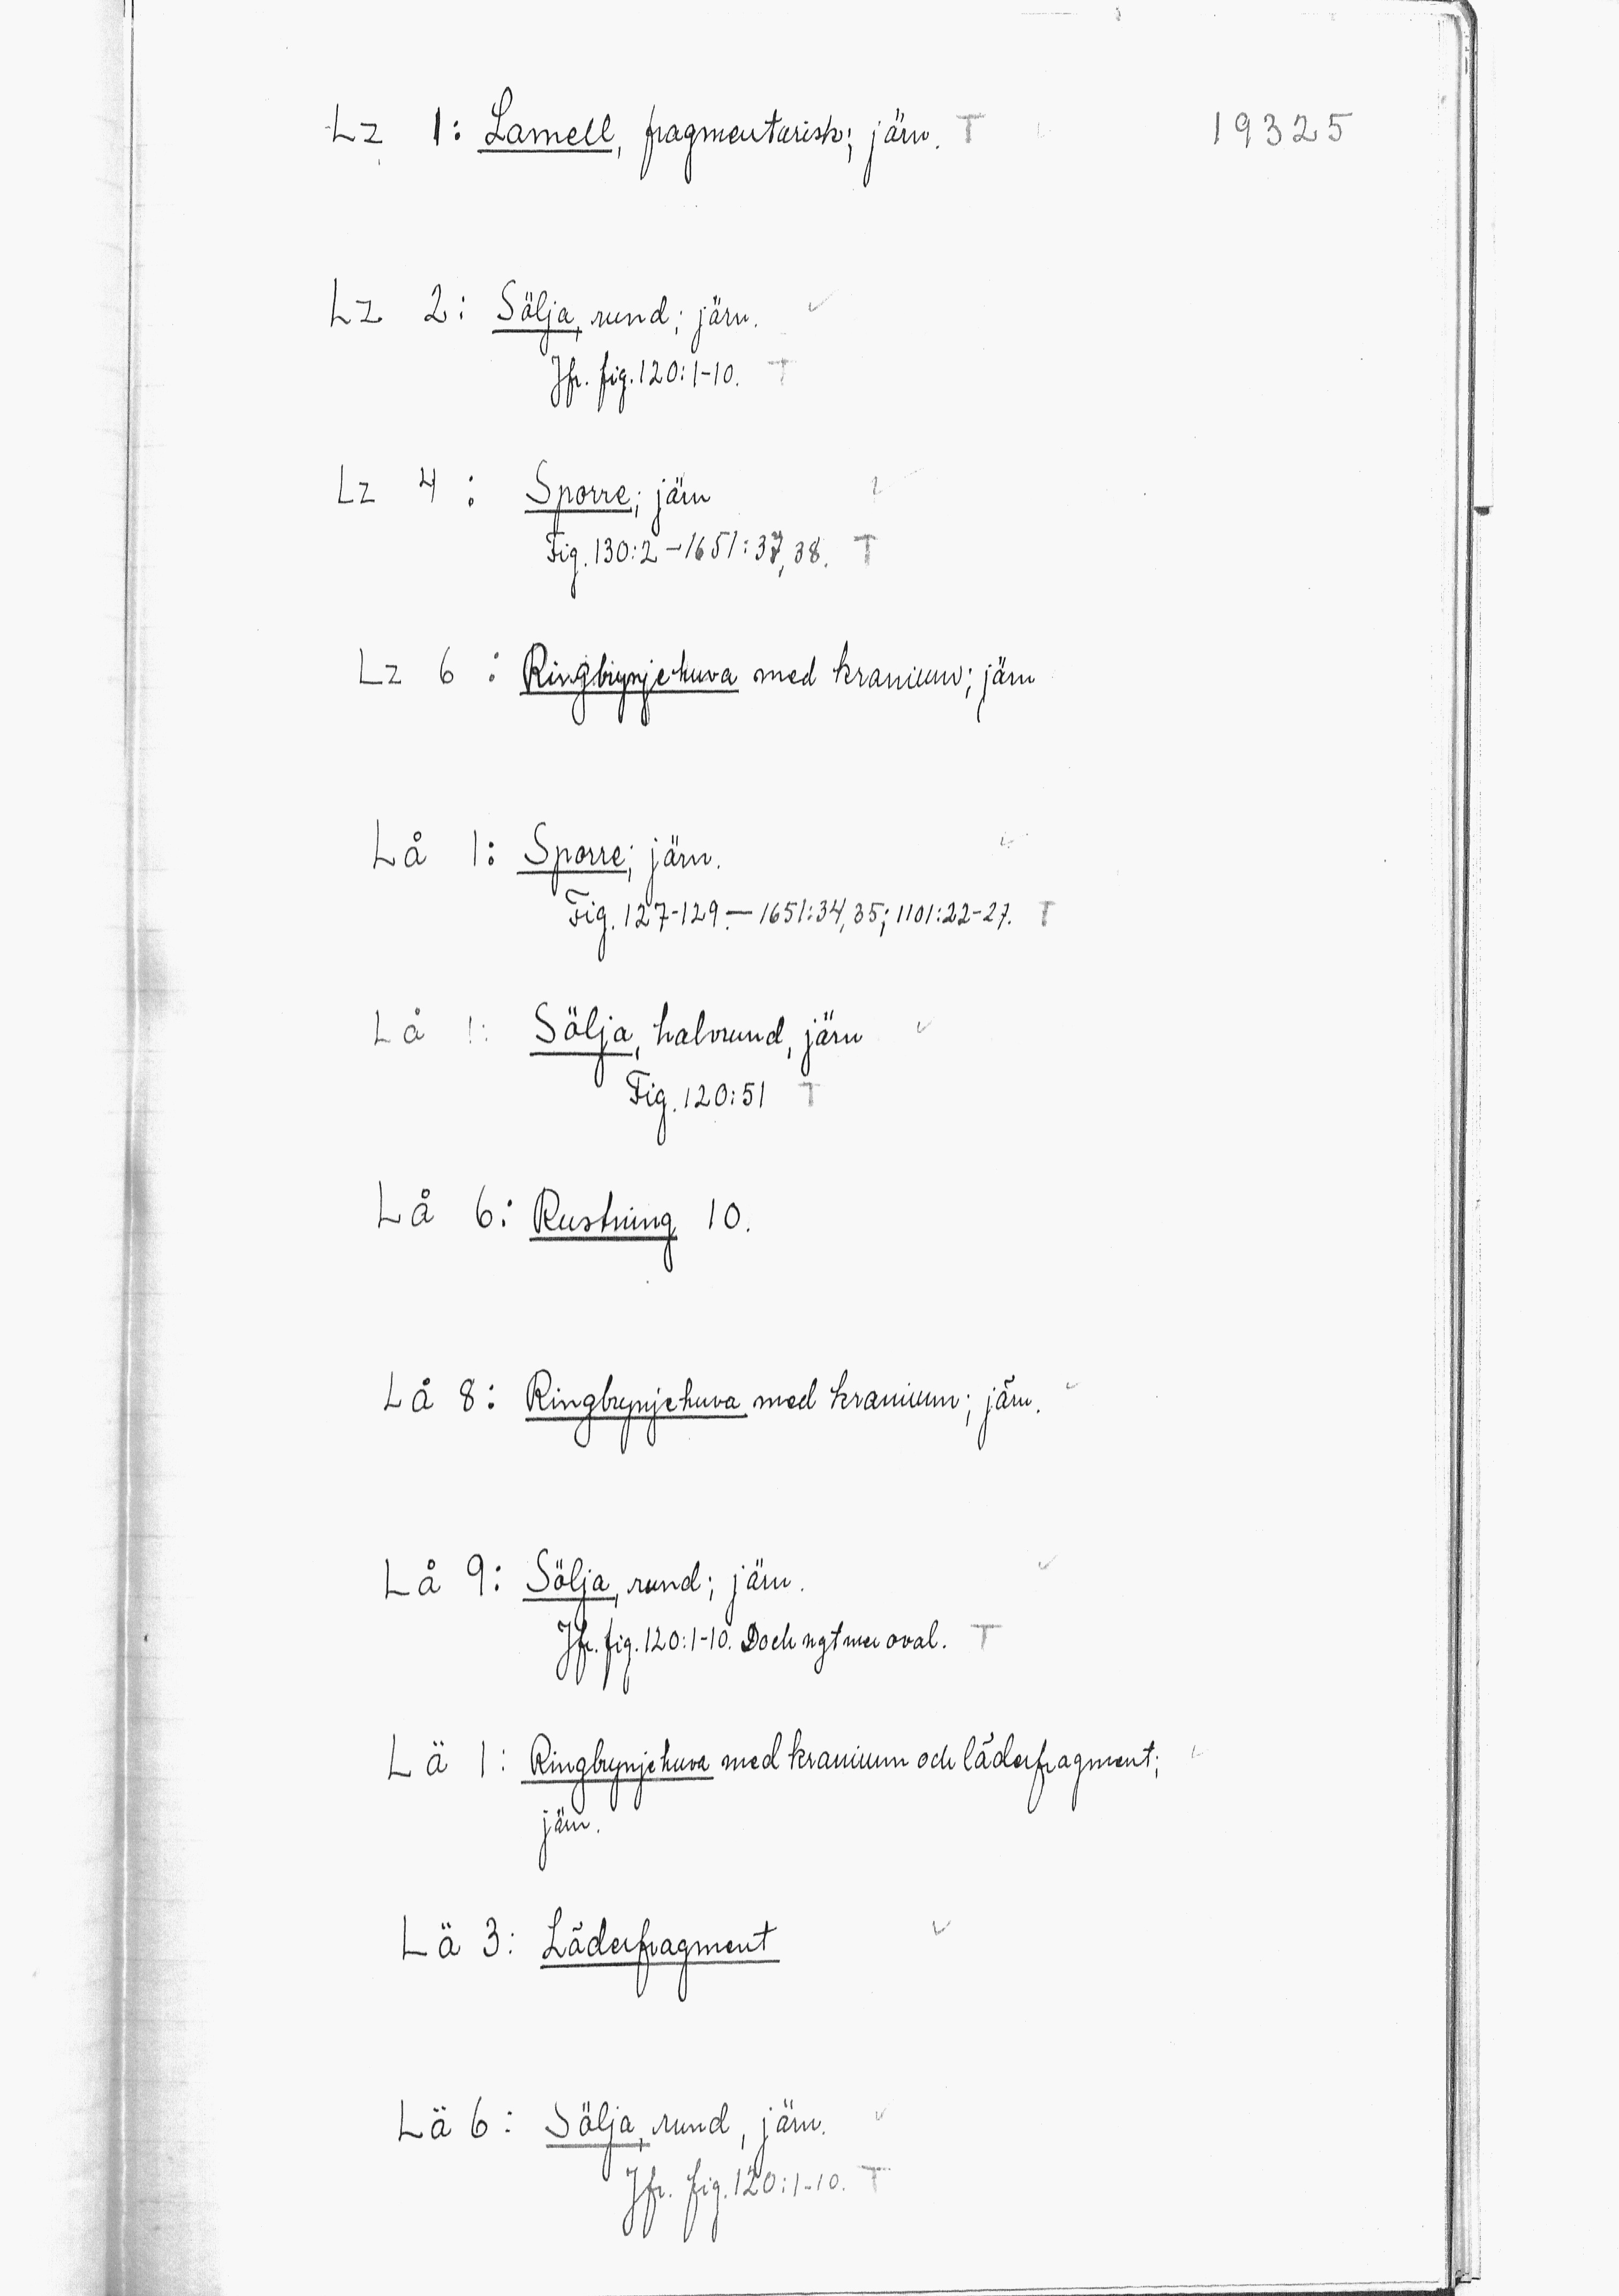 Lz 1: Lamell, fragmentarisk; järn. T 19325
Lz 2: Sölja, rund; järn. ✓
Jfr. fig. 120:1-10. T
Lz 4: Sporre; järn ✓
Fig. 130:2 – 1651:37, 38. T
Lz 6: Ringbrynjehuva med kranium; järn
Lå 1: Sporre; järn. ✓
Fig. 127-129. – 1651:34, 35; 1101:22-27. T
Lå 1: Sölja, halvrund, järn ✓
Fig. 120:51 T
Lå 6: Rustning 10.
Lå 8: Ringbrynjehuva med kranium; järn. ✓
Lå 9: Sölja, rund; järn. ✓
Jfr. fig. 120:1-10. Doch ngt mer oval. T
Lä 1: Ringbrynjehuva med kranium och läderfragment; ✓
järn.
Lä 3: Läderfragment ✓
Lä 6: Sölja, rund, järn. ✓
Jfr. fig. 120:1-10. T